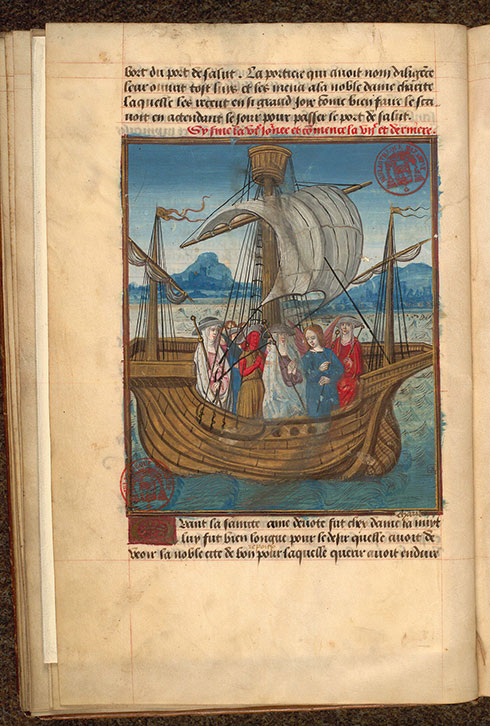 bort du port de salut. La portiere qui avoit nom diligēce
leur ouvrit tost luys et les mena a la noble dame charite
laquelle les receut en si grand joye cōme bien faire se sce
noit en actendant le jour pour passer le port de salut.
Cy fine la vᵉ jōnee et cōmence la viᵉ et derniere.
Vant la saincte ame devote fut chez dame la nuyt
luy fut bien longue pour le desir quelle avoit de
repoux
veoir sa noble cite de bon pour laquelle querir avoit endure